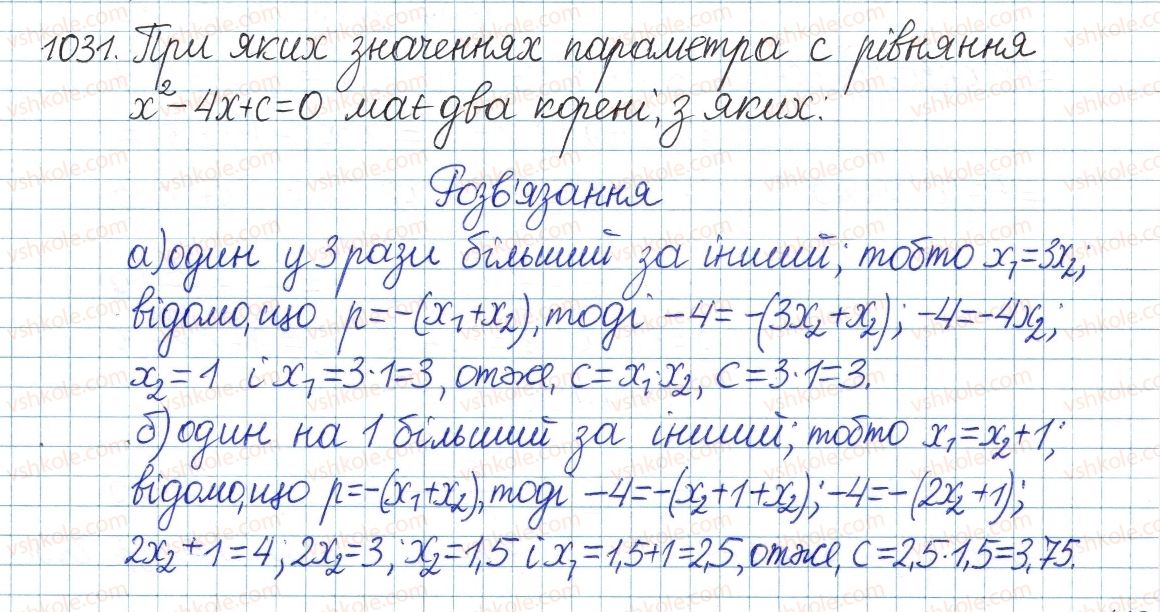 1031. При яких значеннях параметра с рівняння
x²-4x+c=0 має два корені, з яких:
Розв'язання
а) один у 3 рази більший за інший; тобто x₁=3x₂;
відомо, що p=-(x₁+x₂), тоді -4=-(3x₂+x₂); -4=-4x₂;
x₂=1 і x₁=3·1=3, отже, c=x₁·x₂, c=3·1=3.
б) один на 1 більший за інший; тобто x₁=x₂+1;
відомо, що p=-(x₁+x₂), тоді -4=-(x₂+1+x₂); -4=-(2x₂+1);
2x₂+1=4; 2x₂=3; x₂=1,5 і x₁=1,5+1=2,5, отже, c=2,5·1,5=3,75.